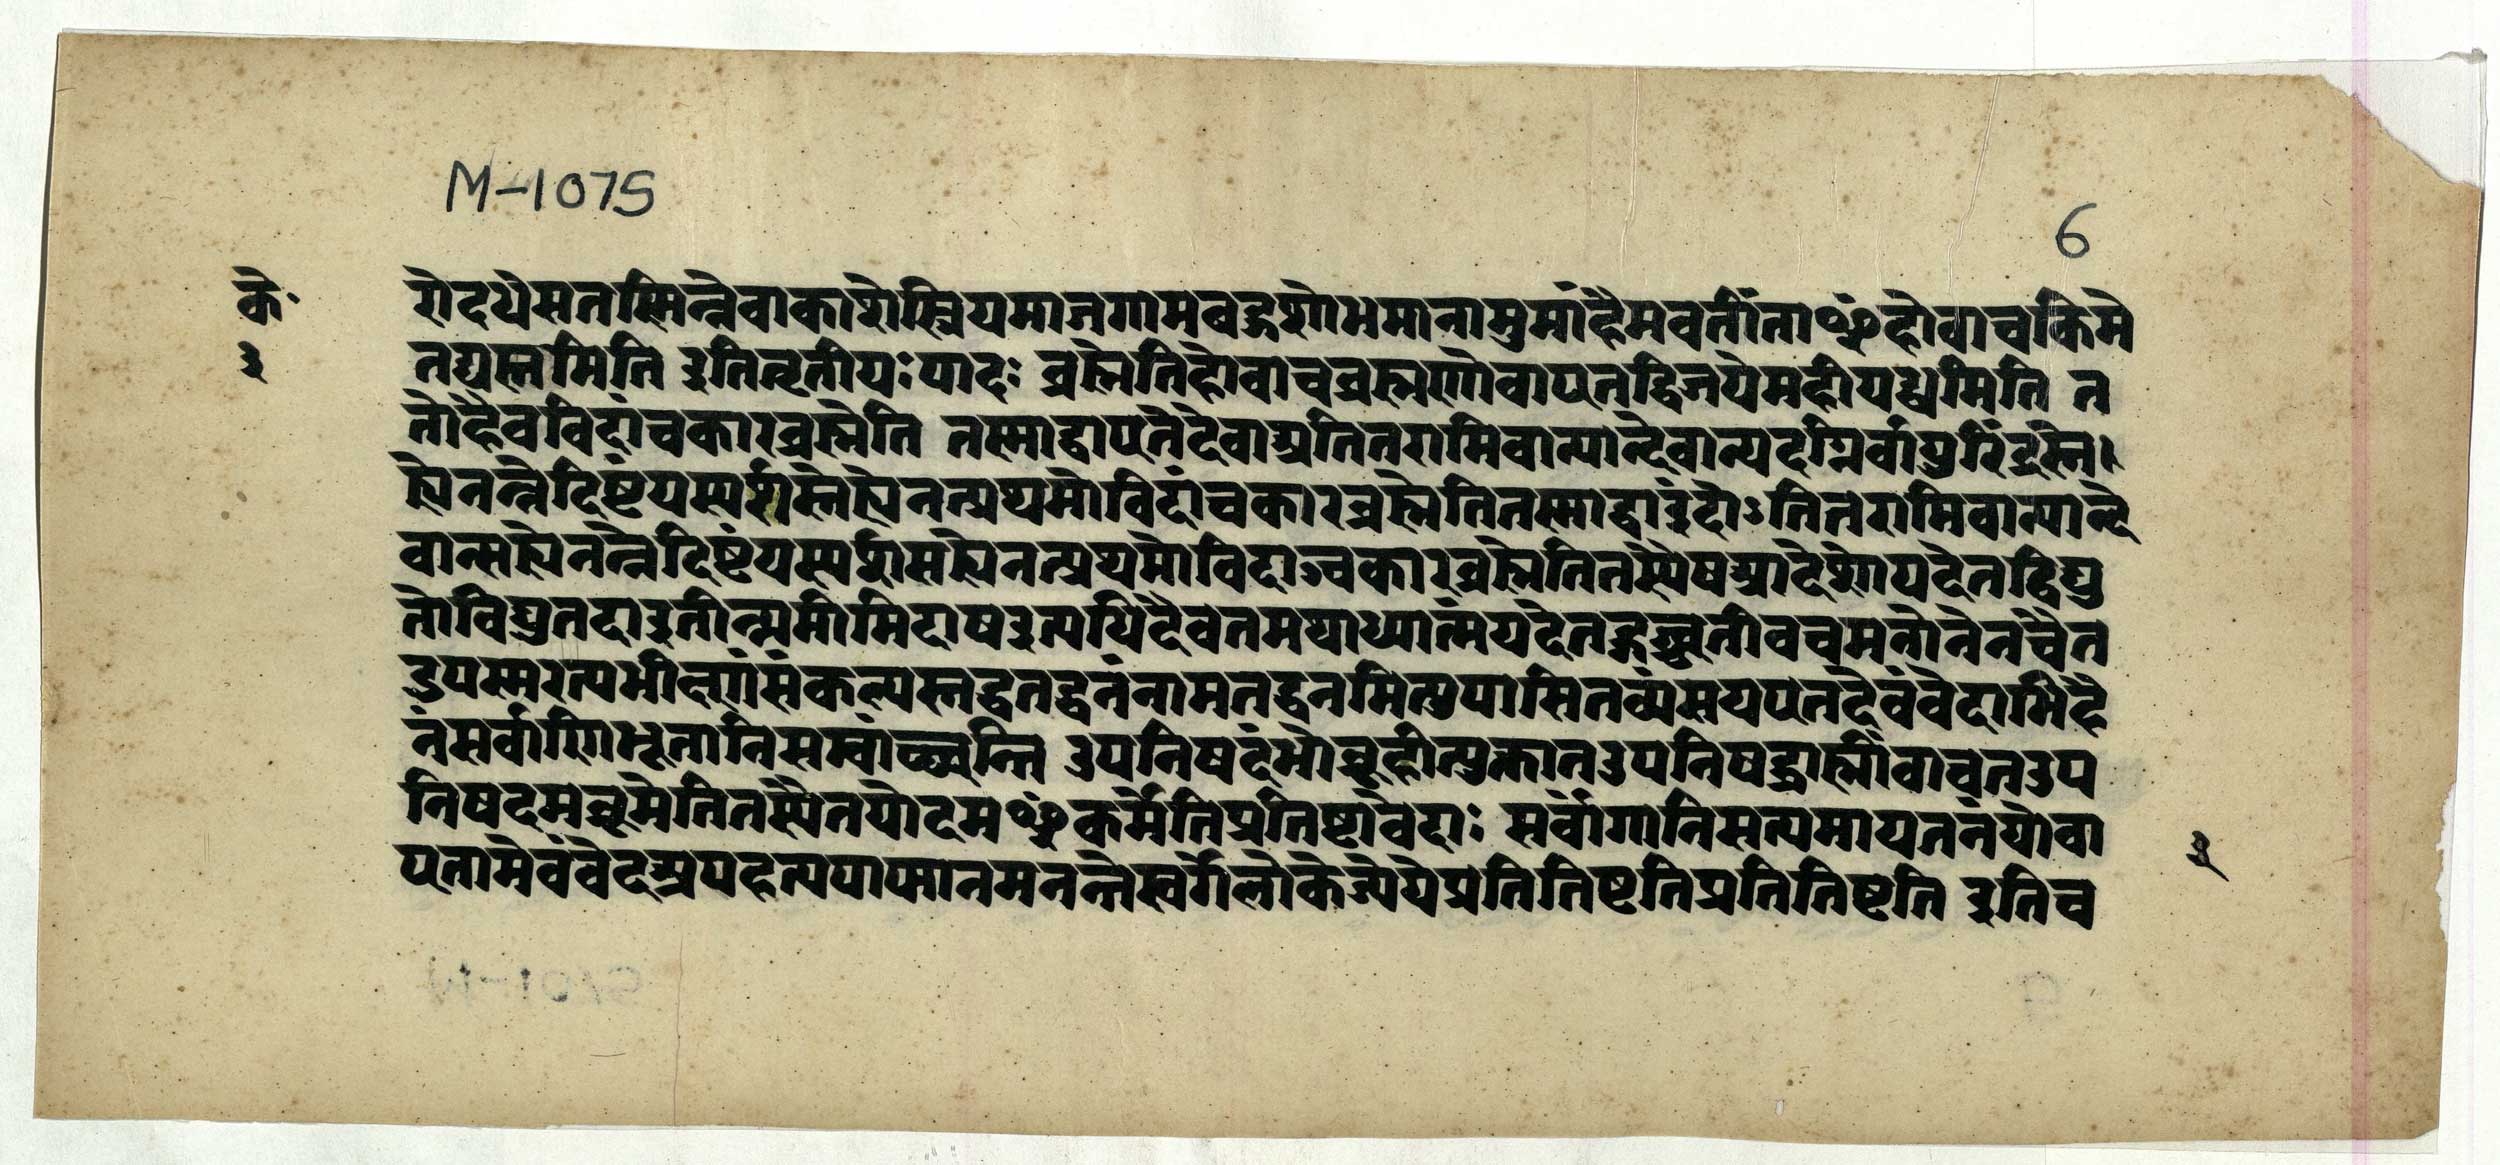 M-1075
6
के॰ रोदधेसतस्मिन्नेवाकाशेस्त्रियमाजगामबहुशोभमानामुमांहैमवतींताꣳहोवाचकिमे
३ तद्यक्षमिति इतितृतीयःपादः ब्रह्मेतिहोवाचब्रह्मणोवाएतद्विजयेमहीयध्वमिति त
तोहैवविदांचकारब्रह्मेति तस्माद्वाएतेदेवाअतितरामिवान्यान्देवान्यदग्निर्वायुरिंद्रस्ते
ह्येनन्नेदिष्टंपस्पर्शुस्तेह्येनत्प्रथमोविदांचकारब्रह्मेतितस्माद्वाइंद्रोऽतितरामिवान्यान्दे
वान्सह्येनन्नेदिष्टंपस्पर्शसह्येनत्प्रथमोविदाञ्चकारब्रह्मेतितस्यैषआदेशोयदेतद्विद्यु
तोविद्युतदाइतीत्यमीमिदाषइत्यधिदैवतमथाध्यात्मंयदेतद्गच्छतीवचमनोनेनचैत
दुपस्मरत्यभीक्ष्णंसंकल्पस्तद्धतद्वनंनामतद्वनमित्युपासितव्यंसयएतदेवंवेदाभिहै
नंसर्वाणिभूतानिसम्वांच्छन्ति उपनिषदंभोब्रूहीत्युक्तातउपनिषद्ब्राह्मींवावतउप
निषदमब्रूमेतितस्यैतपोदमꣳकर्मेतिप्रतिष्टावेदाः सर्वांगानिसत्यमायतनंयोवा
एतामेवंवेदअपहत्यपाप्मानमनन्तेस्वर्गेलोकेज्येयेप्रतितिष्टतिप्रतितिष्टति इतिच
३